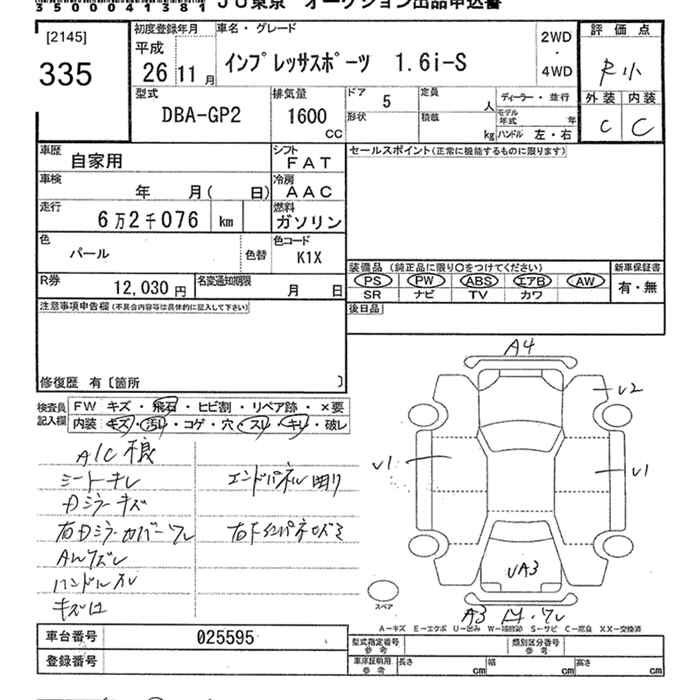 3500041381 JU東京 オークション出品申込書
[2145]
335
初度登録年月
平成
26 11月
車名・グレード
インプレッサスポーツ 1.6i-S
2WD
・
4WD
評価点
外装 内装
C C
型式
DBA-GP2
排気量
1600
CC
ドア 5
形状
定員 人
積載 kg
ディーラー・並行
モデル年式 年
ハンドル 左・右
車歴 自家用
シフト FAT
セールスポイント(正常に機能するものに限ります)
車検 年 月( 日)
冷房 AAC
走行 6万2千076 km
燃料 ガソリン
色 パール 色替
色コード K1X
R券 12,030円
名変通知期限 月 日
装備品 (純正品に限り○をつけてください)
PS PW ABS エアB AW
SR ナビ TV カワ
新車保証書
有・無
注意事項申告欄(不具合内容等は具体的に記入して下さい)
後日品
修復歴 有〔箇所 〕
検査員記入欄
FW キズ・飛石・ヒビ割・リペア跡・×要
内装・キズ・汚レ・コゲ・穴・スレ・キレ・破レ
A/C 不良
シートキレ
エンドパネル曲り
Dミラーキズ
右Dミラーカバーワレ
AWスレ
ハンドルスレ
A4
V2
V1
V1
UA3
A3
スペア
A-キズ E-エクボ U-凹み W-補修跡 S-サビ C-腐食 XX-交換済
車台番号 025595
登録番号
型式指定番号
参考
類別区分番号
参考
車庫証明用
参考
長さ cm 幅 cm 高さ cm